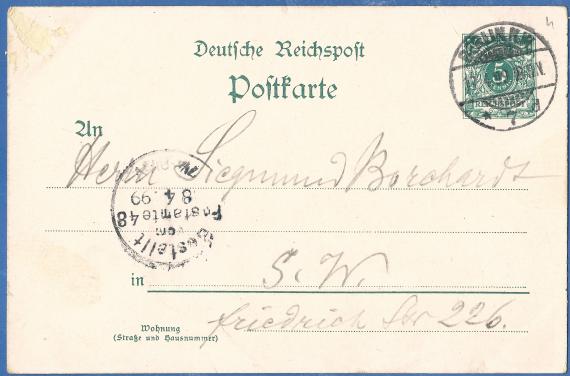 Deutsche Reichspost
Postkarte
5
REICHSPOST
7
d
An
Herrn Siegmund Borchardt
Bestellt
vom
Postamte 48
8 4. 99
in S. W.
Friedrich Str 226.
Wohnung
(Straße und Hausnummer)